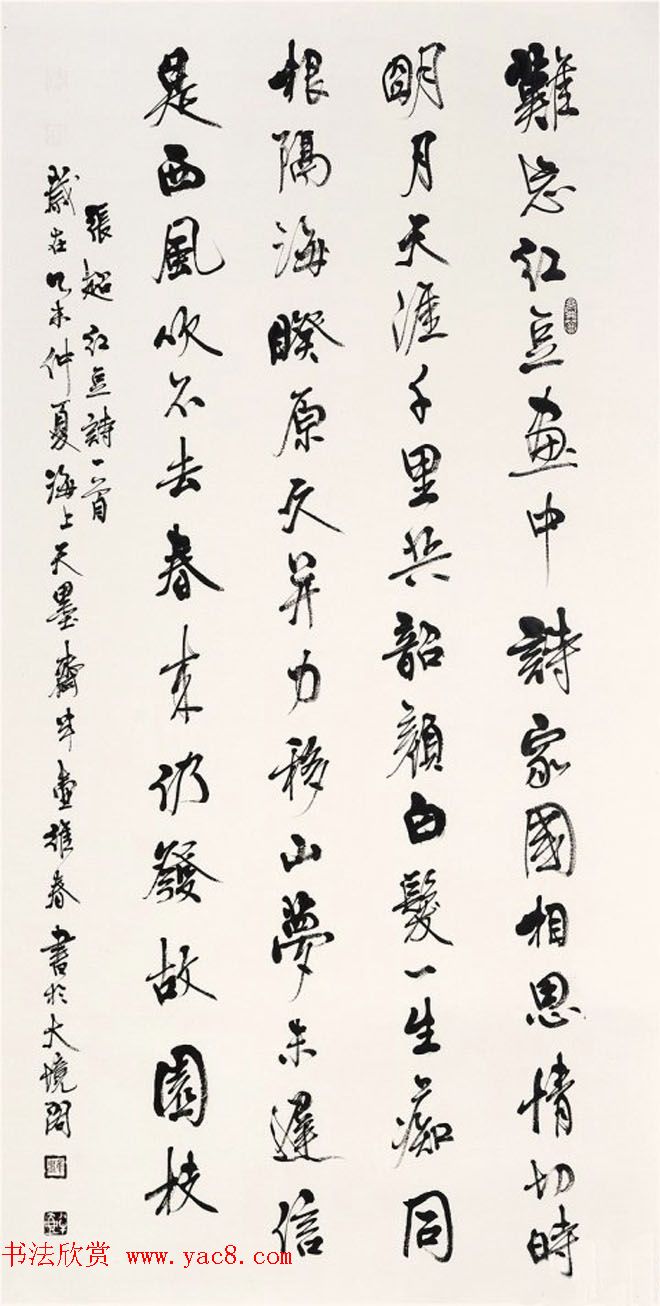 難忘红豆畫中詩家國相思情切時
明月天涯千里共韶顔白髮一生痴同
根隔海睽原久并力移山夢未遲信
是西風吹不去春来仍發故園枝
張超红豆詩一首
歲在乙未仲夏海上天墨齋雄春書於大境閣
书法欣赏 www.yac8.com